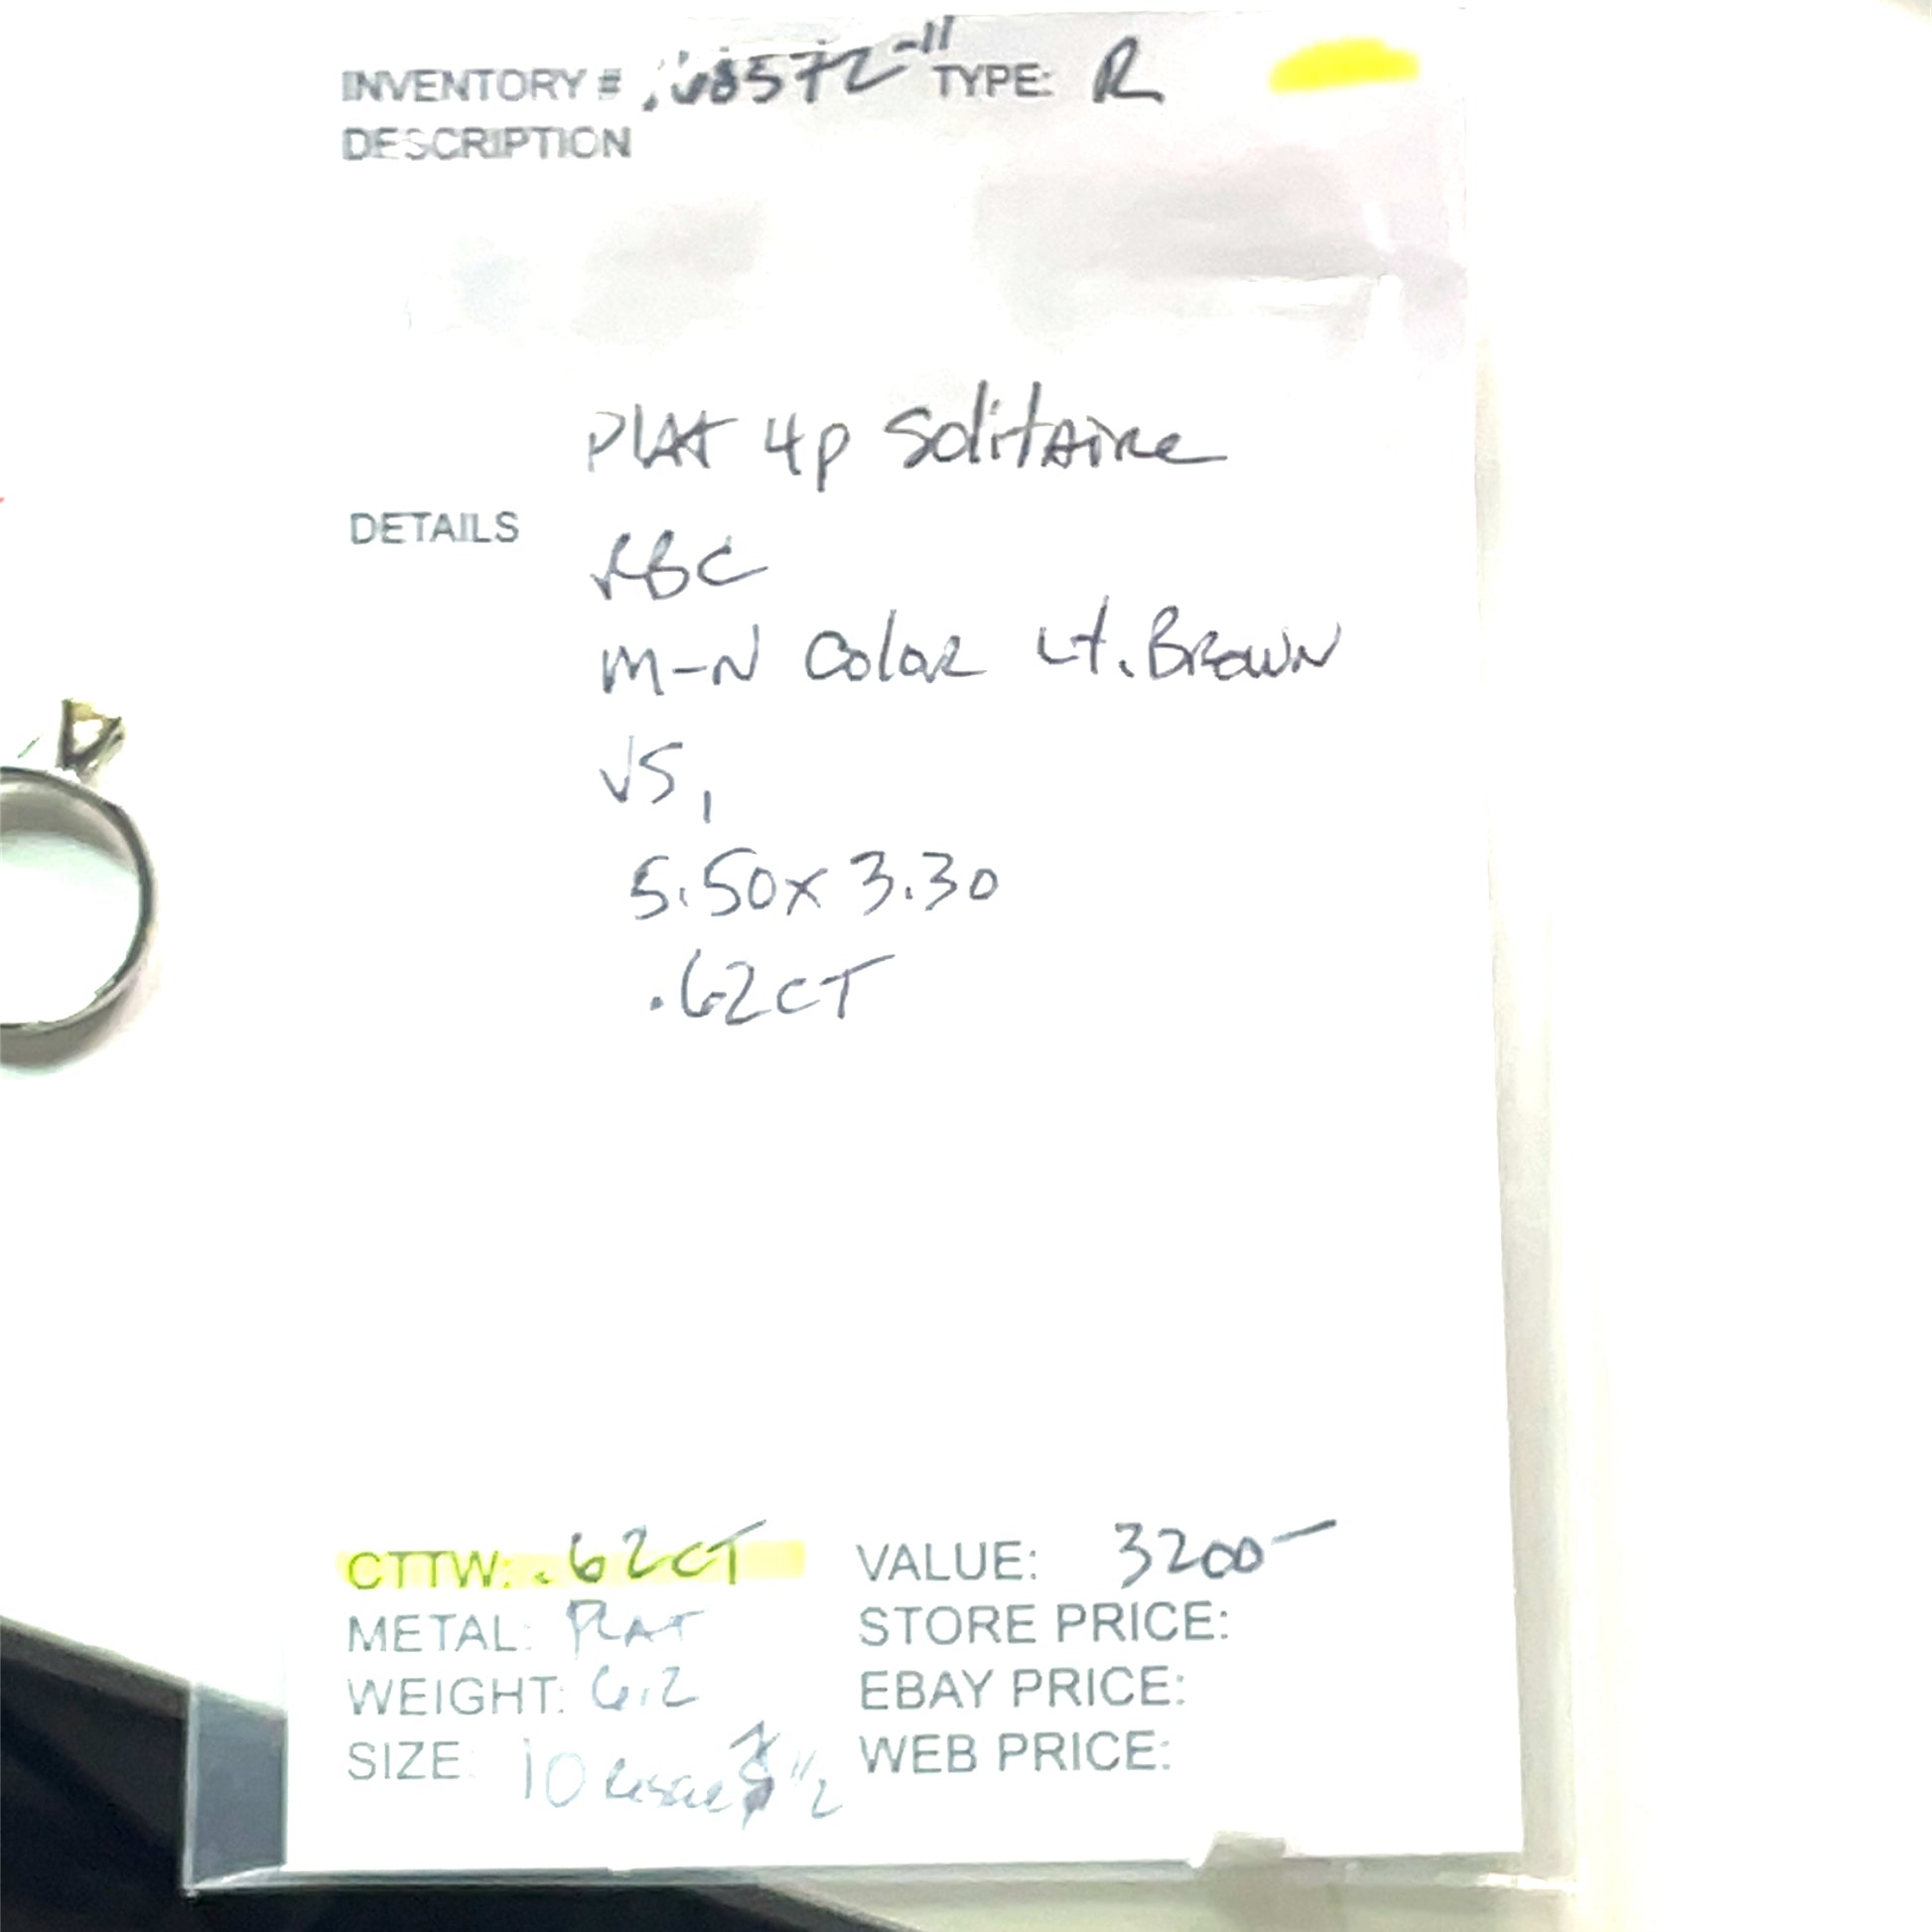 INVENTORY # 8572-11 TYPE: R
DESCRIPTION
PLAT 4P Solitaire
DETAILS
RBC
M-N Color Lt. Brown
VS1
5.50 x 3.30
.62CT
CTTW: .62CT VALUE: 3200-
METAL: PLAT STORE PRICE:
WEIGHT: 6.2 EBAY PRICE:
SIZE: 10 1/2 WEB PRICE: